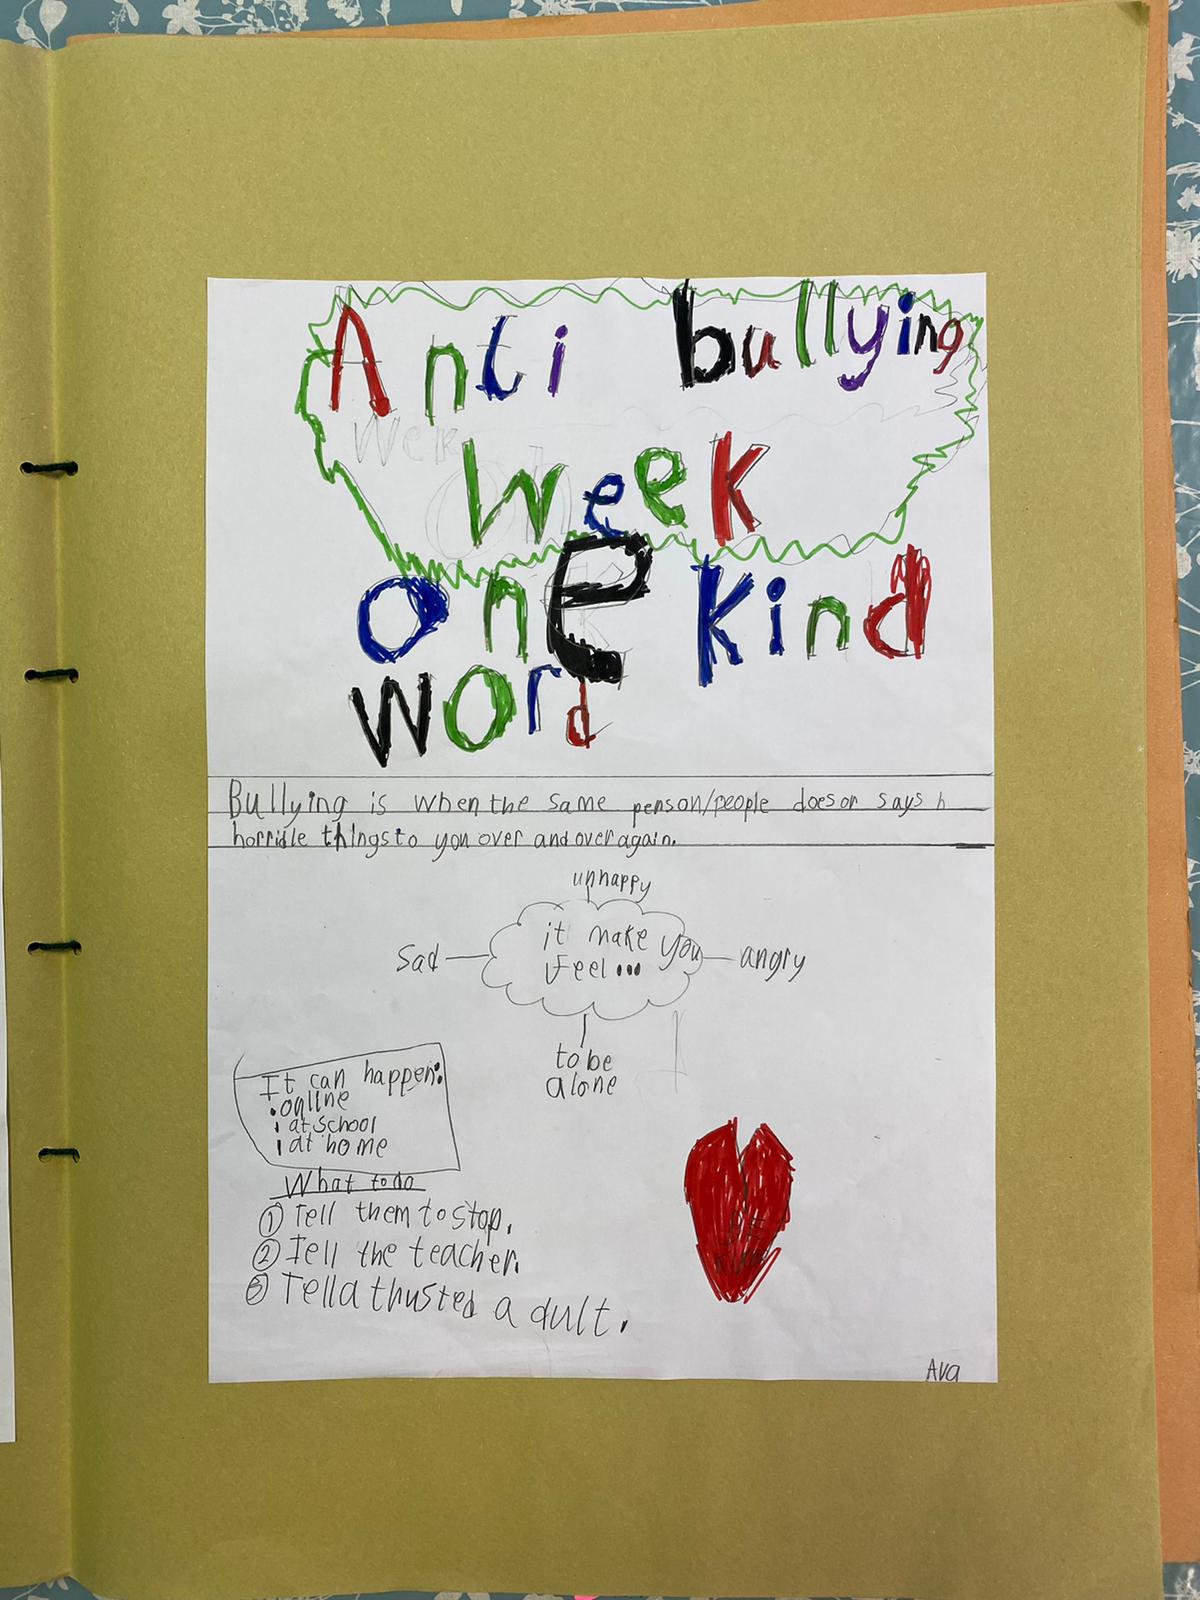 Anti bullying
Week
Wek
one kind
word
Bullying is when the same person/people does or says h
horrible things to you over and over again.
unhappy
it make you
feel...
sad
angry
to be
alone
It can happen:
• online
• at school
• at home
What to do
① Tell them to stop.
② Tell the teacher.
③ Tell a thusted adult.
Ava